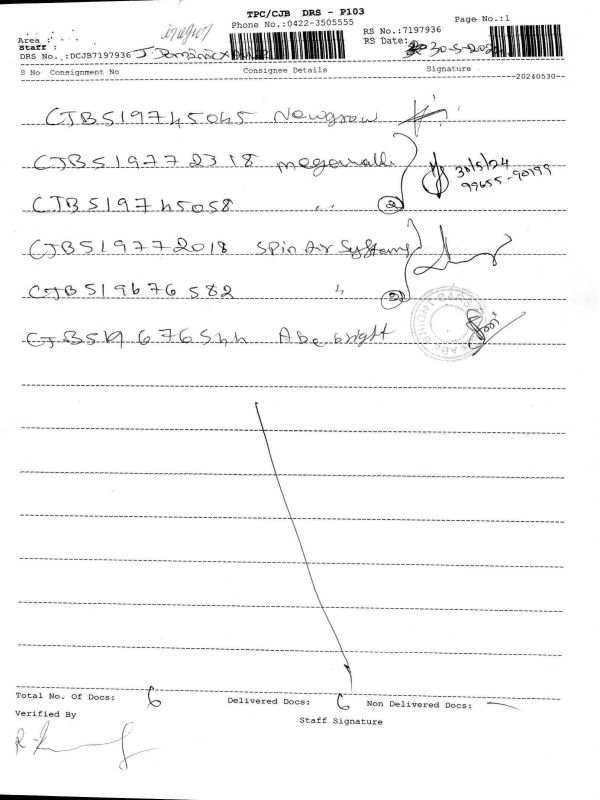 TPC/CJB DRS - P103
Phone No.:0422-3505555
Page No.:1
RS No.:7197936
Area :
RS Date: 30-5-2024
Staff :
DRS No. :DCJB7197936
S No Consignment No Consignee Details Signature
--20240530--
CJB519745045 Newgrow
CJB519772318 megawalk
30/5/24
99655-90199
CJB519745058 " 2
CJB519772018 Spin Air Systems
CJB519676582 " 2
CJB519676544 Abe bright
Total No. Of Docs: 6 Delivered Docs: 6 Non Delivered Docs: —
Verified By
Staff Signature